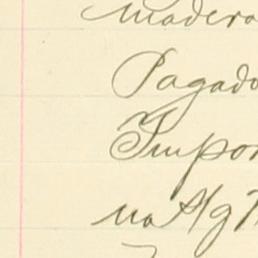 madera
Pagado
Impor
no A/g